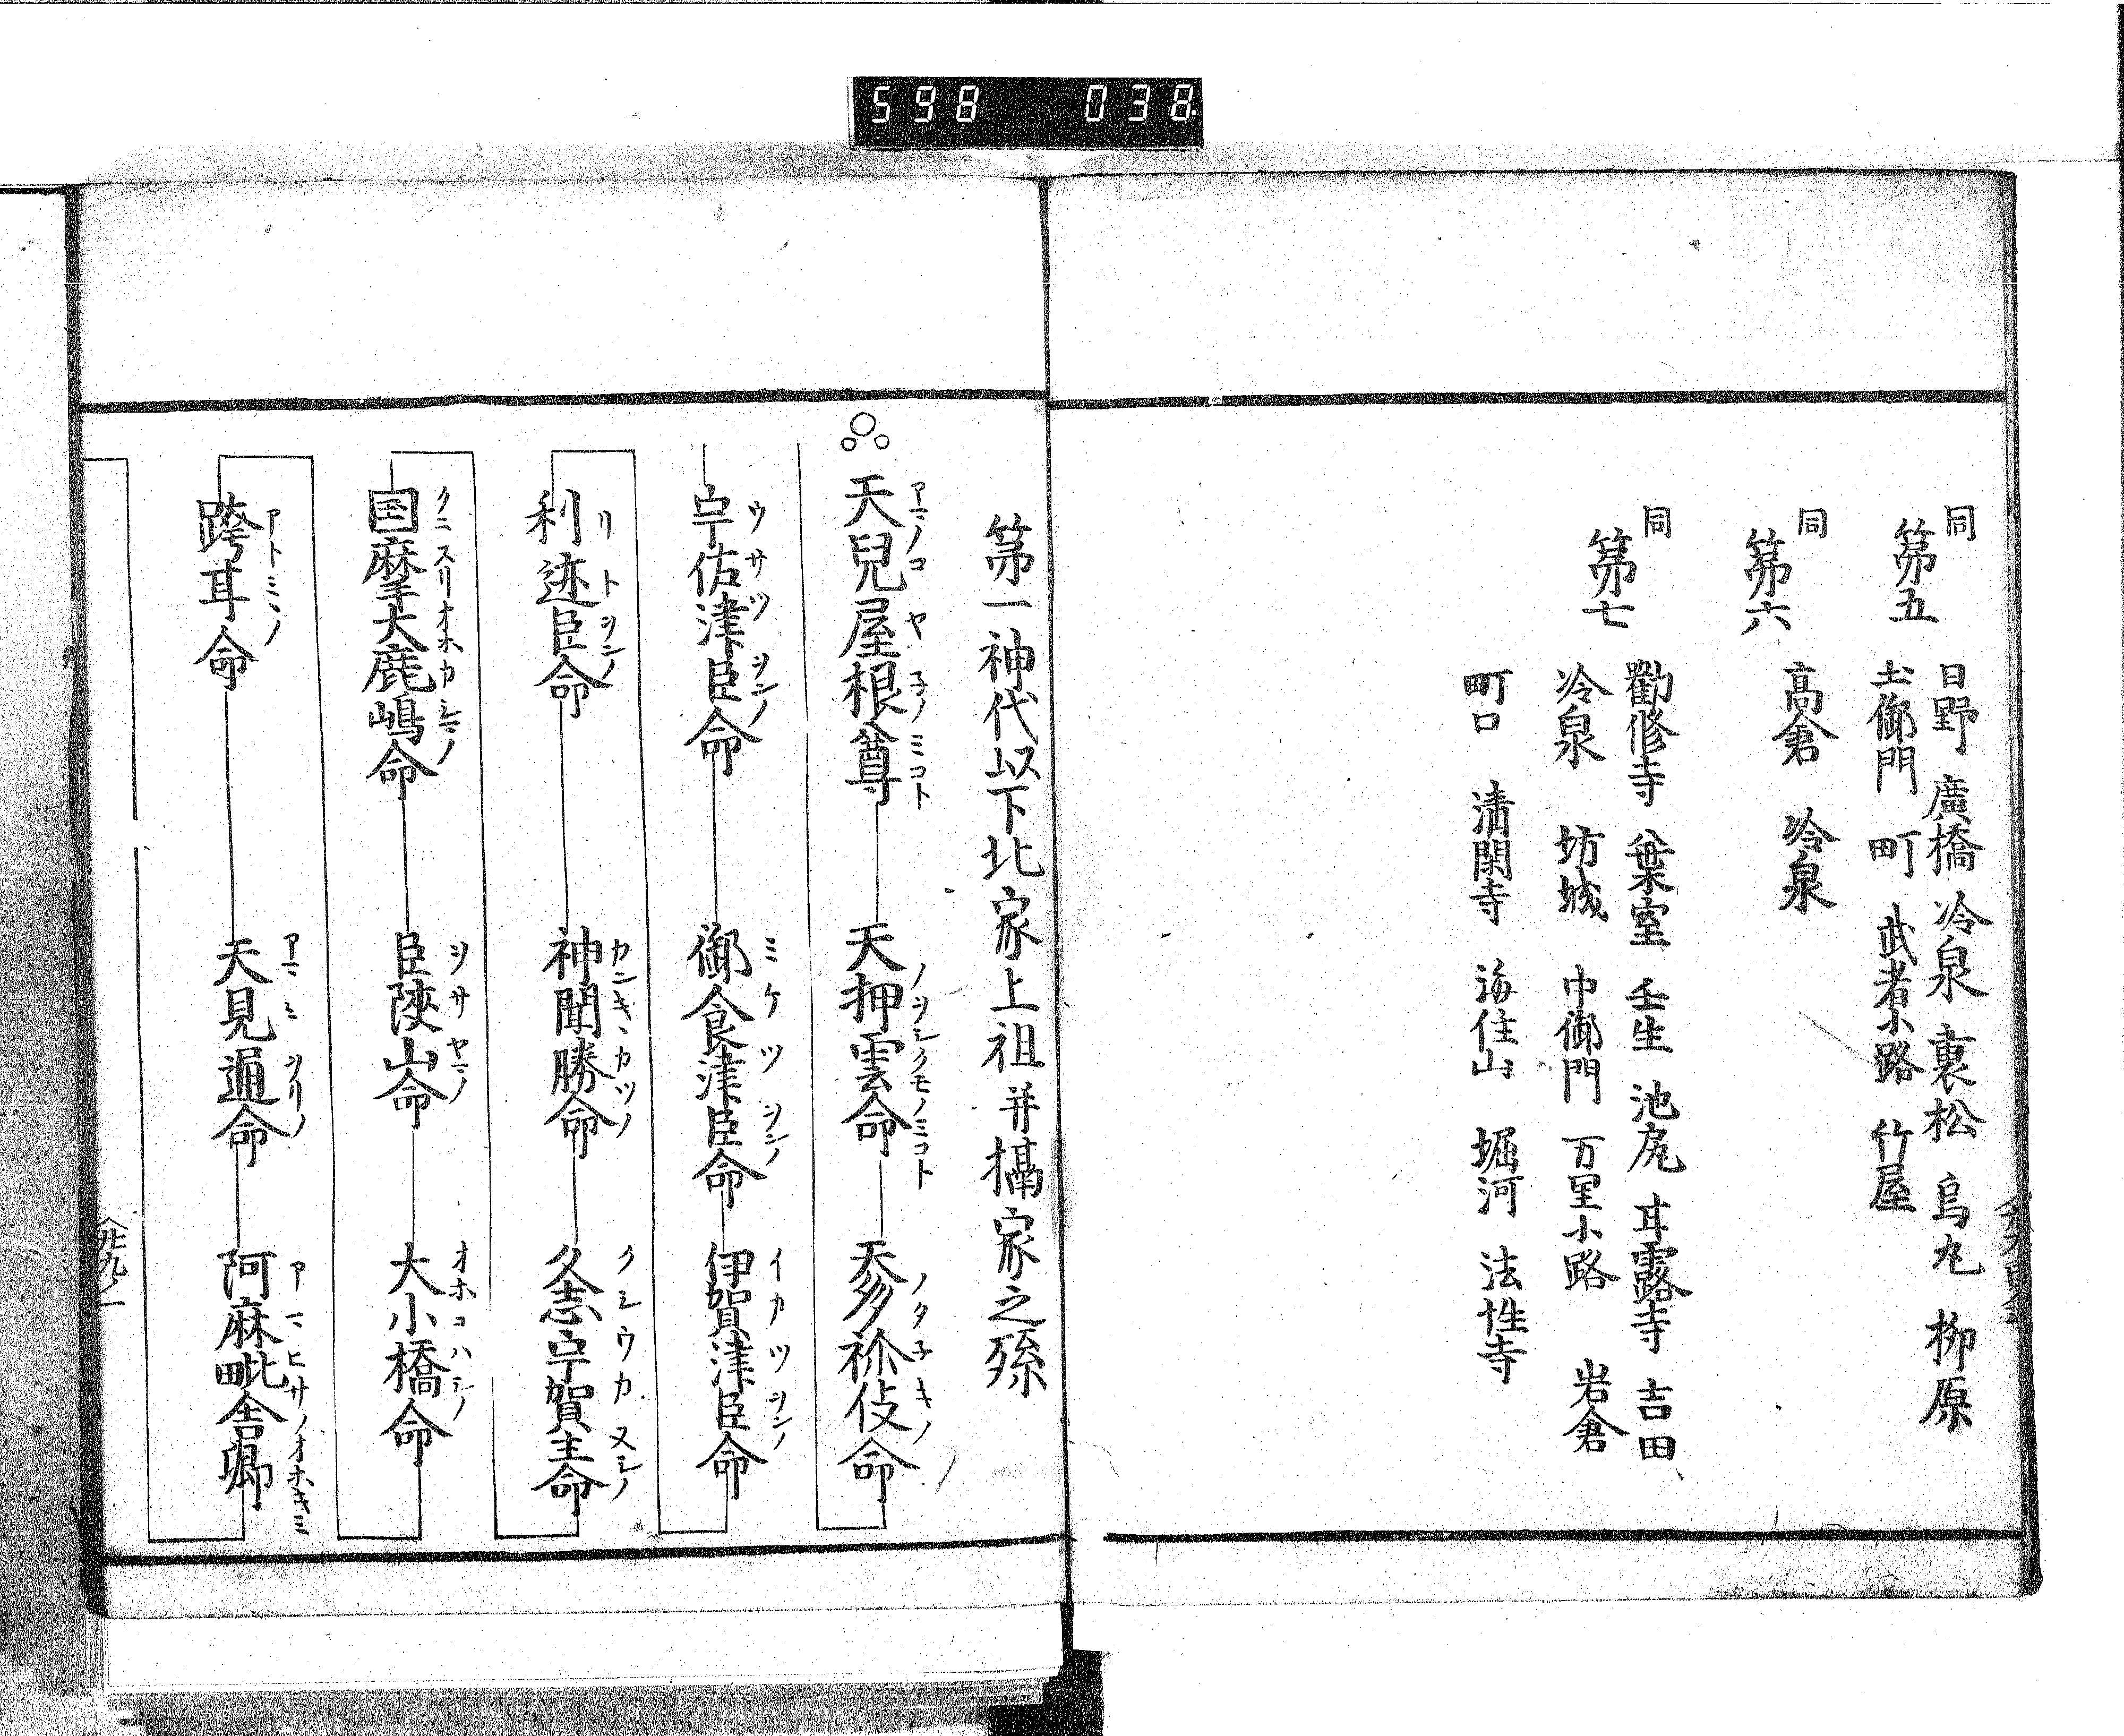 598 038
同
第五
日野 廣橋 冷泉 裏松 烏丸 柳原
土御門 町 武者小路 竹屋
同
第六
高倉 冷泉
同
第七
勸修寺 葉室 壬生 池尻 甘露寺 吉田
冷泉 坊城 中御門 万里小路 岩倉
町口 清閑寺 海住山 堀河 法性寺
第一神代以下北家上祖并攝家之孫
天兒屋根尊 天押雲命 天多祢伎命
アマノコヤ子ノミコト ノヲシクモノミコト ノタ子キノ
宇佐津臣命 御食津臣命 伊賀津臣命
ウサツヲシノ ミケツヲシノ イカツヲシノ
利迹臣命 神聞勝命 久志宇賀主命
リトヲシノ カニキヽカツノ クシウカヌシノ
国摩大鹿嶋命 臣陝山命 大小橋命
クニスリオホカシマノ ヲサヤマノ オホコハシノ
跨耳命 天見通命 阿麻毗舎卿
アトミヽノ アマミヲリノ アマヒサノオホキミ